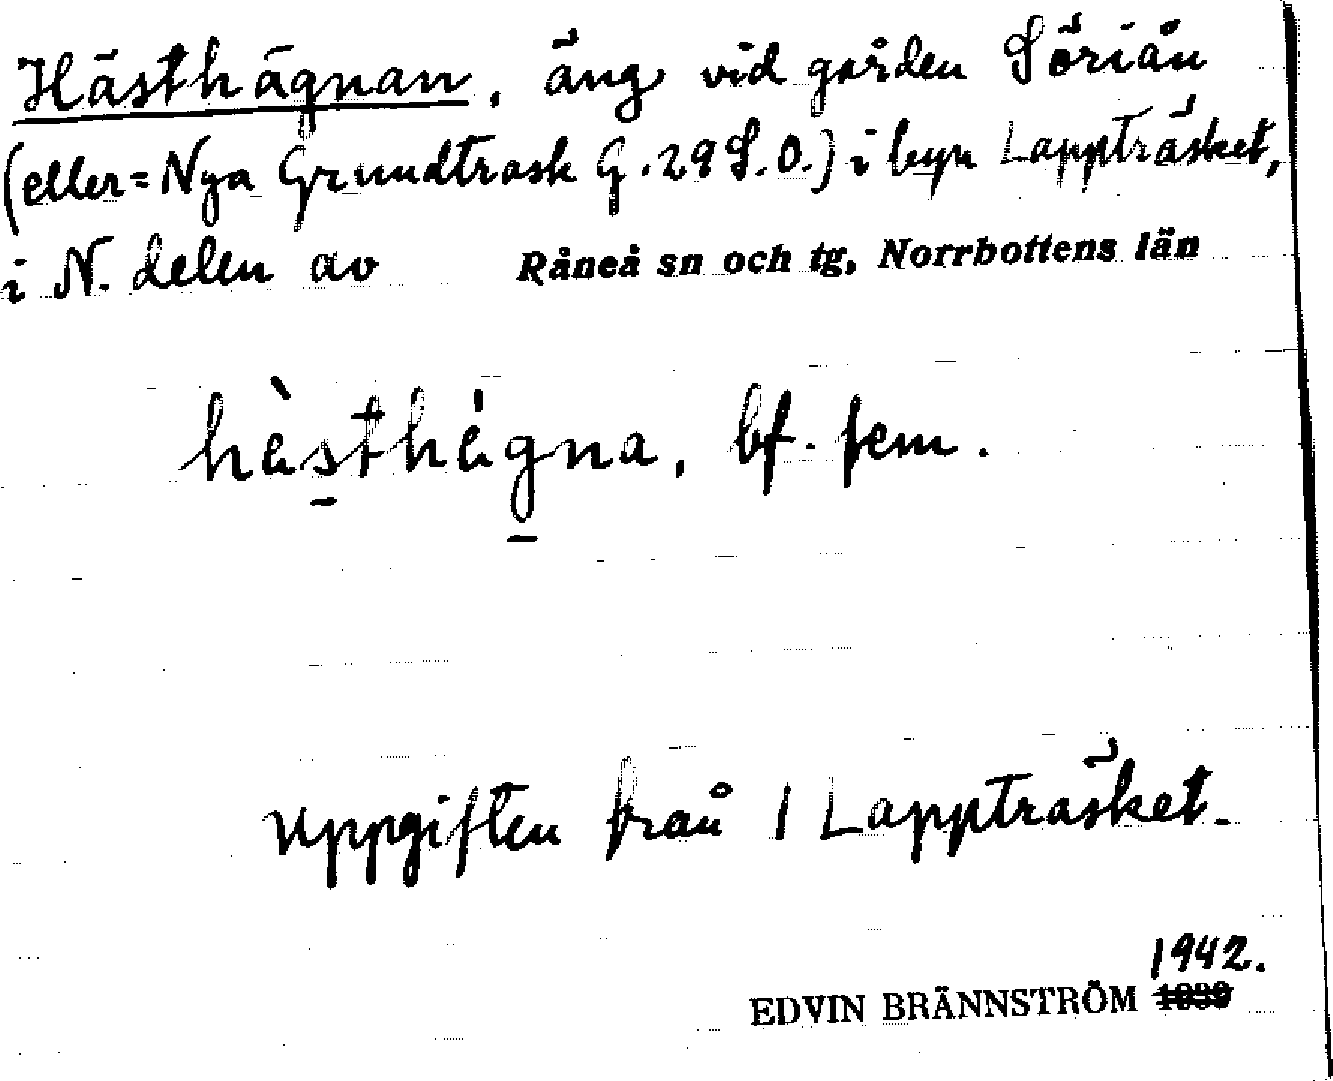 Hästhägnan, äng vid gården Söriån
(eller = Nya Grundträsk G. 29 S.O.) i byn Lappträsket,
i N. delen av Råneå sn och tg, Norrbottens län
hàs̱thág̱na, bf. fem.
Uppgiften från 1 Lappträsket.
1942.
EDVIN BRÄNNSTRÖM 1939